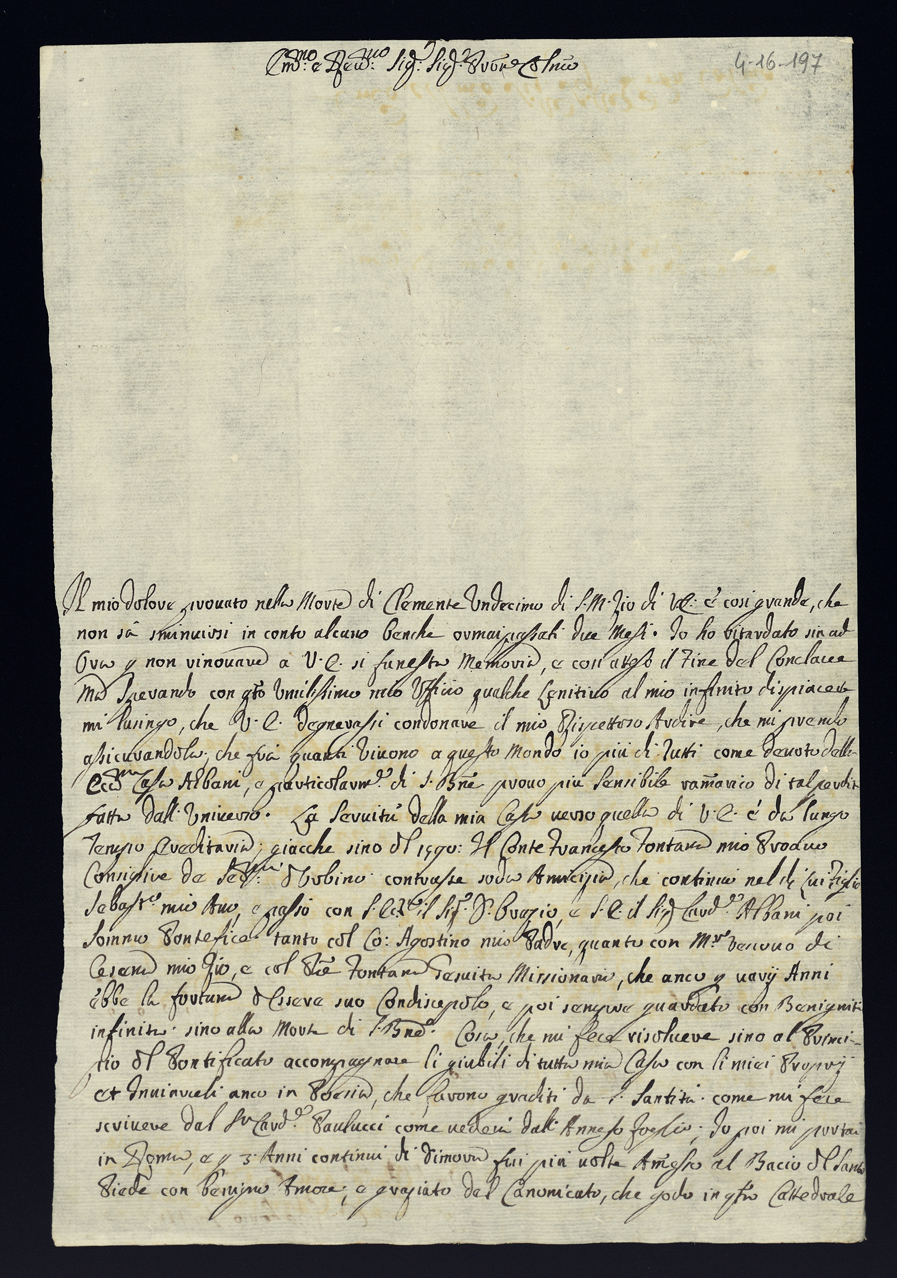 Em.mo e Rev.mo Sig.r Sig.r Pron.e Col.mo
4-16-197
Il mio dolore provato nella Morte di Clemente Undecimo di S. M. Zio di V. E. è così grande, che
non sà sminuirsi in conto alcuno benche ormai passati due Mesi. Io ho ritardato sin ad
Ora p non rinovare a V. E. si funesta Memoria, e con atteso il Fine del Conclave
Ma Sperando con gto Umilissimo mio Uffizio qualche Lenitivo al mio infinito dispiacere
mi lusingo, che V. E. degnerassi condonare il mio Rispettoso Ardire, che mi prendo
assicurandola, che frà quanti vivono a questo Mondo io più di tutti come devoto della
Ecc.ma Casa Albani, e particolarm.te di S. Bne provo più sensibile ramarico di tal perdita
fatta dall'Universo. La Servitù della mia Casa verso quella di V. E. è da lungo
Tempo Ereditaria; giacche sino dl 1590: Il Conte Francesco Fontana mio Proavo
Consigliere de d'Urbino contrasse soda Amicizia, che continuò nel di lui Figlio
Sebast.o mio Avo, e passò con S. il Sig.r D. Orazio, e S. E. il Sig.r Card.e Albani poi
Sommo Pontefice tanto col Co: Agostino mio Padre, quanto con M.r Vescovo di
Cesena mio Zio, e col Pre Fontana Gesuita Missionario, che anco p varij Anni
ebbe la fortuna d'Essere suo Condiscepolo, e poi sempre guardato con Benignità
infinita sino alla Morte di S. Bne. Cosa, che mi fece risolvere sino al Princi-
pio dl Pontificato accompagnare li giubili di tutta mia Casa con li miei Proprij
et Inviarneli anco in Poesia, che furono graditi da S. Santità come mi fece
scrivere dal Sr Card.e Paulucci come vederà dall'Annesso foglio; Io poi mi portai
in Roma, e p 3 Anni continui di Dimora fui più volte Ammesso al Bacio dl Santo
Piede con benigno Amore, e graziato del Canonicato, che godo in qsta Cattedrale